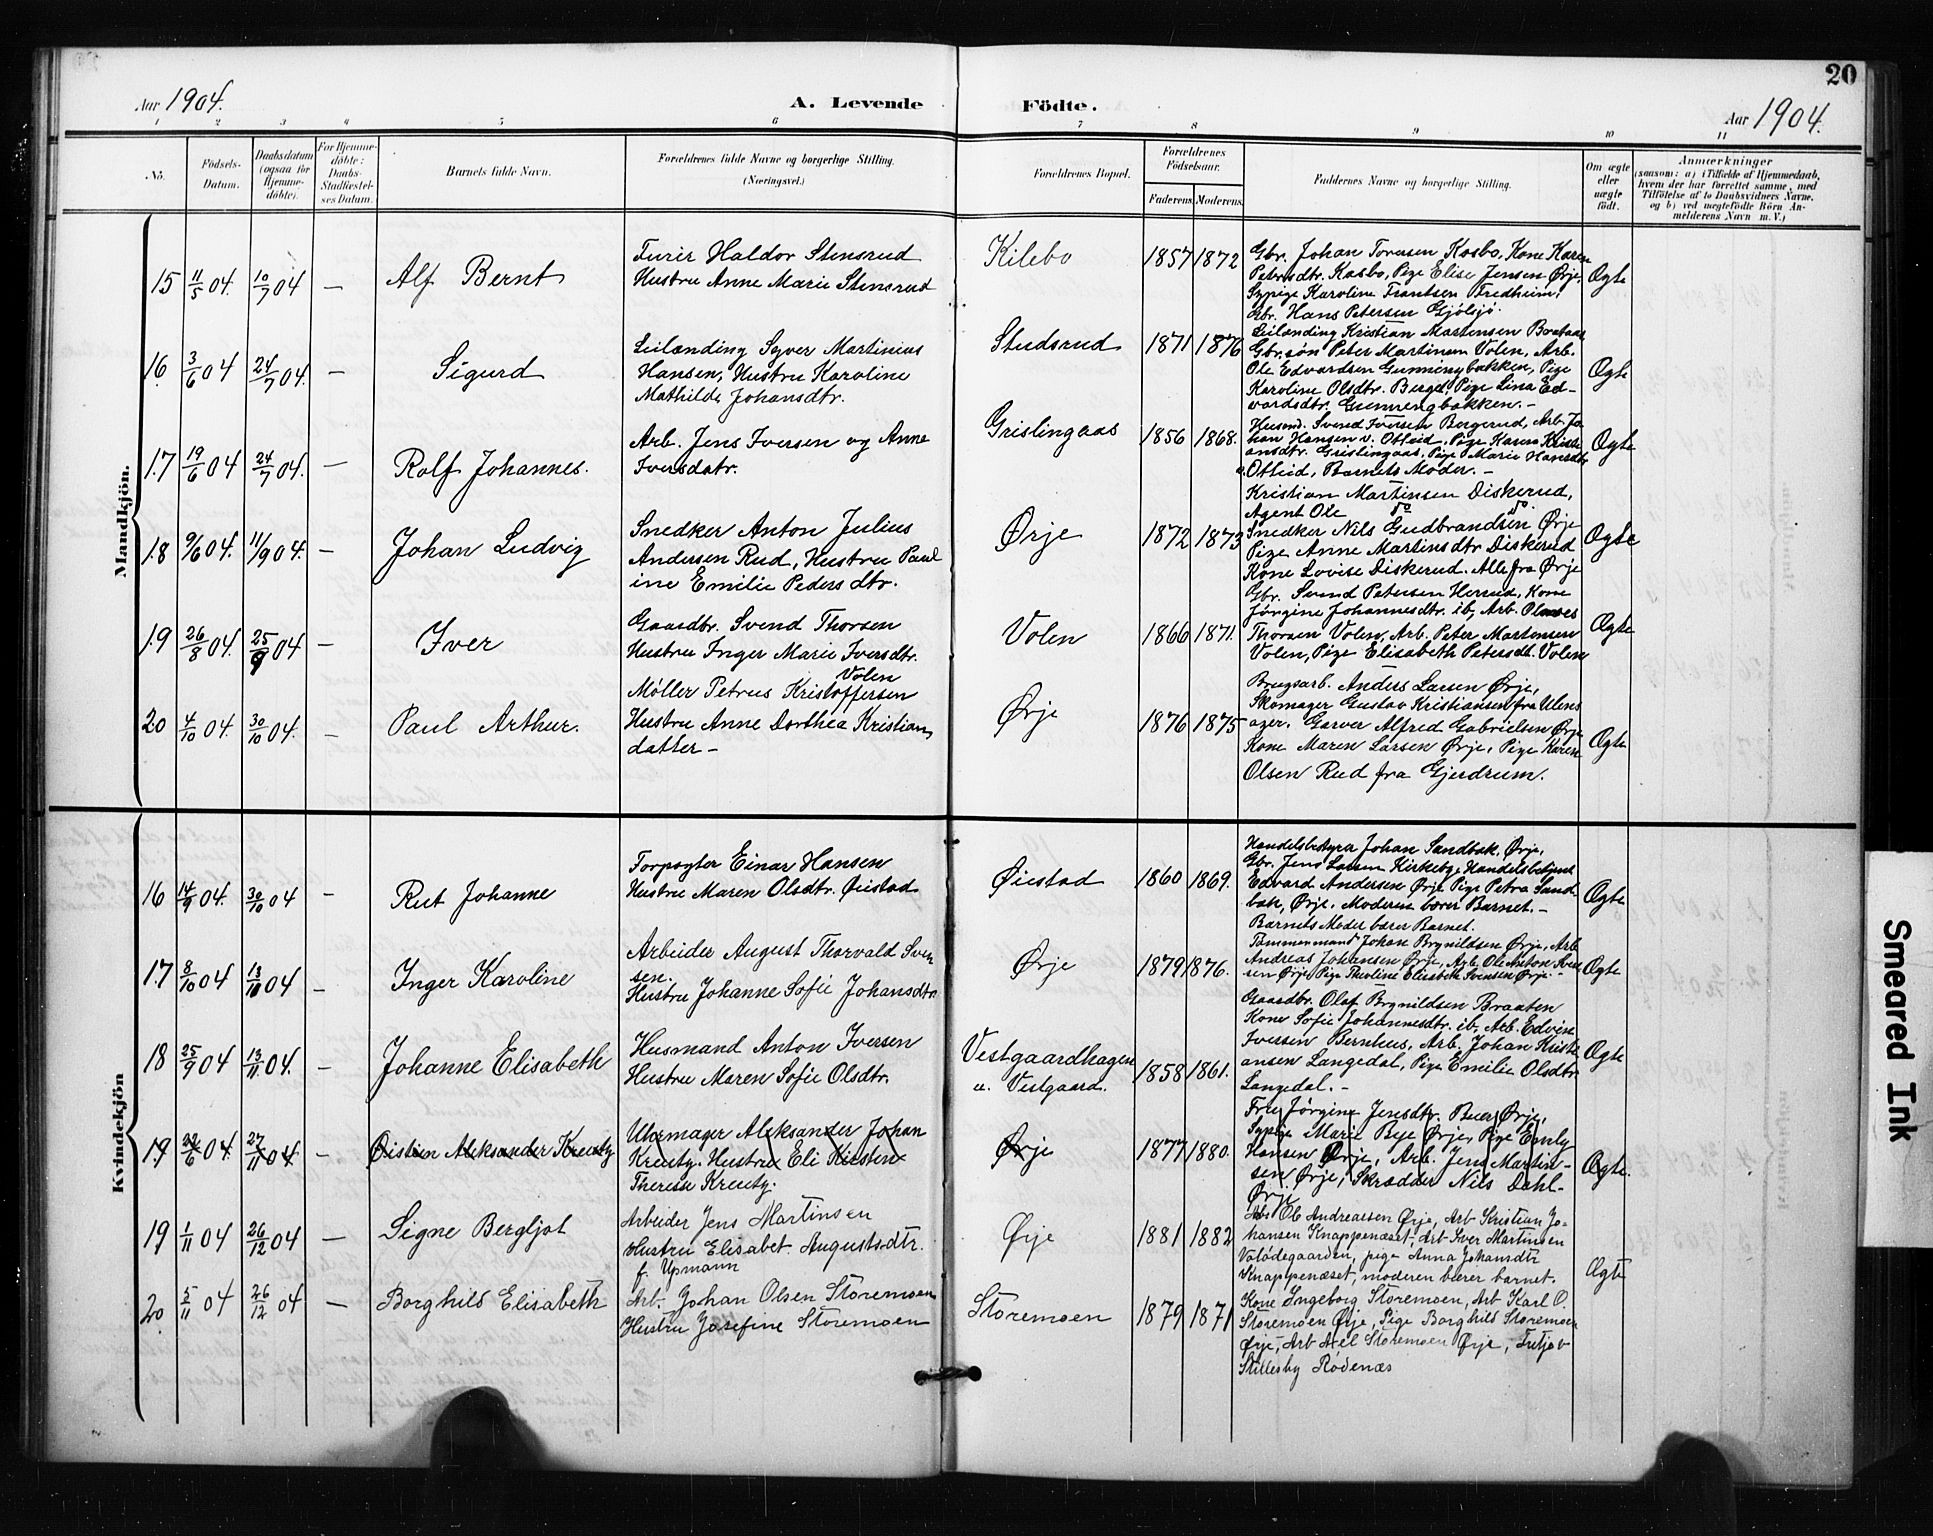 20
Aar 1904.
A. Levende
Födte.
Aar 1904.
1 2 3 4 5 6 7 8 9 10 11
No.
Födsels-
Datum.
Daabsdatum
(ogsaa for
Hjemme-
döbte).
For Hjemme-
döbte:
Daabs-
Stadfæstel-
ses Datum.
Barnets fulde Navn.
Forældrenes fulde Navne og borgerlige Stilling.
(Næringsvei.)
Forældrenes Bopæl.
Forældrenes
Födselsaar.
Faderens.
Moderens.
Faddernes Navne og borgerlige Stilling.
Om ægte
eller
uægte
födt.
Anmærkninger
(saasom: a) i Tilfælde af Hjemmedaab,
hvem der har forrettet samme, med
Tilföielse af to Daabsvidners Navne,
og b) ved uægtefödte Börn An-
melderens Navn m. V.)
Mandkjön.
15 11/5 04. 10/7 04 — Alf Bernt
Furer Haldor Stensrud
Hustru Anne Marie Stensrud
Kilebo 1857 1872
Gbr. Johan Toresen Kasbo, Kone Karen
Petersdtr. Kasbo, Pige Elise Jensen Ørje,
Sypige Karoline Frantsen Fredheim,
Gbr. Hans Petersen Gjølsjø.
Ægte
16 3/6 04 24/7 04. — Sigurd
Leilænding Syver Martinius
Hansen, Hustru Karoline
Mathilde Johansdtr.
Studsrud 1871 1876
Leilænding Kristian Martensen Braataas
Gbr.søn Peter Martinsen Volen, Arb.
Ole Edvardsen Gunnengbakken, Pige
Karoline Olsdtr. Berget, Pige Lina Ed-
vardsdtr. Gunnengbakken. —
Ægte
17 19/6 04 24/7 04. — Rolf Johannes.
Arb. Jens Iversen og Anne
Iversdatr.
Grislingaas 1856 1868.
Husmd. Svend Iversen Bergerud, Arb. Jo
han Hansen v. Otteid, Pige Karen Kristi
ansdtr. Grislingaas, Pige Marie Hansdtr
v. Otteid, Barnets Moder. —
Ægte
18 9/6 04. 11/9 04. — Johan Ludvig
Snedker Anton Julius
Andersen Rud, Hustru Paul
ine Emilie Peders dtr.
Ørje 1872 1873
Kristian Martinsen Diskerud,
Agent Ole do do.
Snedker Nils Gudbrandsen Ørje
Pige Anne Martinsdtr Diskerud
Kone Lovise Diskerud. Alle fra Ørje
Ægte
19 26/8 04. 25/9 04 — Iver
Gaardbr. Svend Thorsen
Hustru Inger Marie Iversdtr.
Volen
Volen 1866 1871.
Gbr. Svend Petersen Herrud, Kone
Jørgine Johannesdtr. ib, Arb. Olaves
Thorsen Volen, Arb. Peter Martensen
Volen, Pige Elisabeth Petersdt. Volen
Ægte
20 4/10 04. 30/10 04. — Paul Arthur.
Møller Petrus Kristoffersen
Hustru Anne Dorthea Kristians
datter —
Ørje 1876 1875
Brugsarb. Anders Larsen Ørje,
Skomager Gustav Kristiansen fra Ulens
ager. Garver Alfred Gabrielsen Ørje
Kone Maren Larsen Ørje, Pige Karen
Olsen Rud fra Gjerdrum.
Ægte
Kvindekjön
16 14/9 04. 30/10 04 — Rut Johanne
Forpagter Einar Hansen
Hustru Maren Olsdtr. Øiestad
Øiestad 1860 1869.
Handelsbestyrer Johan Sandbak, Ørje,
Gbr. Jens Larsen Kirkeby, Handelsbetjent
Edvard Andersen Ørje Pige Petra Sand-
bak, Ørje. Moderen bærer Barnet. —
Ægte
17 8/10 04 13/11 04 — Inger Karoline
Arbeider August Thorvald Sven
sen.
Hustru Johanne Sofie Johansdtr
Ørje 1879 1876.
Barnets Moder bærer Barnet.
Tømmermand Johan Brynildsen Ørje, Arb
Andreas Johansen Ørje, Arb. Ole Anton Sven
sen Ørje, Pige Theoline Elisabeth Svensen Ørje —
Ægte
18 25/9 04 13/11 04. — Johanne Elisabeth
Husmand Anton Iversen
Hustru Maren Sofie Olsdtr.
Vestgaardhagen
u. Vestgaard. 1858 1861.
Gaardbr. Olaf Brynildsen Braaten
Kone Sofie Johannesdtr. ib, Arb. Edvin
Iversen Bernhus, Arb. Johan Kristi
ansen Langedal, Pige Emilie Olsdtr
Langedal. —
Ægte
19 22/6 04. 27/11 04 — Øistein Aleksander Kreutz
Uhrmager Aleksander Johan
Kreutz. Hustru Eli Kirsten
Therese Kreutz.
Ørje 1877 1880.
Fru Jørgine Jensdtr. Buer Ørje,
Sypige Marie Bye Ørje, Pige Emly
Hansen Ørje, Arb. Jens Martin-
sen Ørje, Skrædder Nils Dahl-
Ørje
Ægte.
19 1/11 04 26/12 04 — Signe Bergljot
Arbeider Jens Martinsen
Hustru Elisabet Augustsdtr.
f. Upmann
Ørje 1881 1882
Arb Ole Andreassen Ørje, Arb Kristian Jo-
hansen Knappenæset, Arb Iver Martinsen
Vatødegaarden, pige Anna Johansdtr
Knappenæset, moderen bærer barnet.
Ægte
20 5/11 04 26/12 04 — Borghild Elisabeth
Arb. Johan Olsen Storemoen
Hustru Josefine Storemoen
Storemoen 1879 1871
Kone Ingeborg Storemoen, Arb Karl O.
Storemoen Ørje, Pige Borghild Storemoen
Ørje, Arb Axel Storemoen Ørje,
Stillesby Rødenæs
Smeared Ink